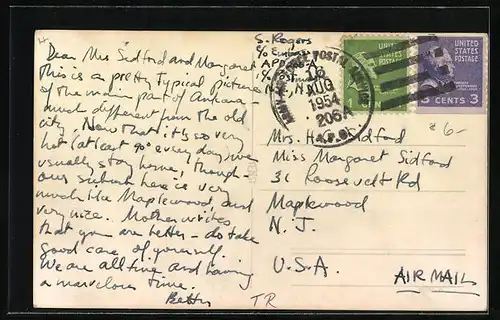 Dear Mrs Sidford and Margaret
This is a pretty typical picture
of the main part of Ankara -
much different from the old
city. Now that it is so very
hot (at least 90° every day) we
usually stay home, though -
our suburb here is very
much like Maplewood, and
very nice. Mother writes
that you are better - do take
good care of yourself.
We are all fine and having
a marvelous time.
Betty
TR
S. Rogers
c/o
APO 206-A
c/o Postmaster
N.Y., N.Y.
POSTAL SERVICE
18
AUG
1954
206A
A.P.O.
1
UNITED STATES POSTAGE
3 CENTS 3
Mrs. H. Sidford
Miss Margaret Sidford
31 Roosevelt Rd
Maplewood
N. J.
U.S.A.
AIR MAIL
6-